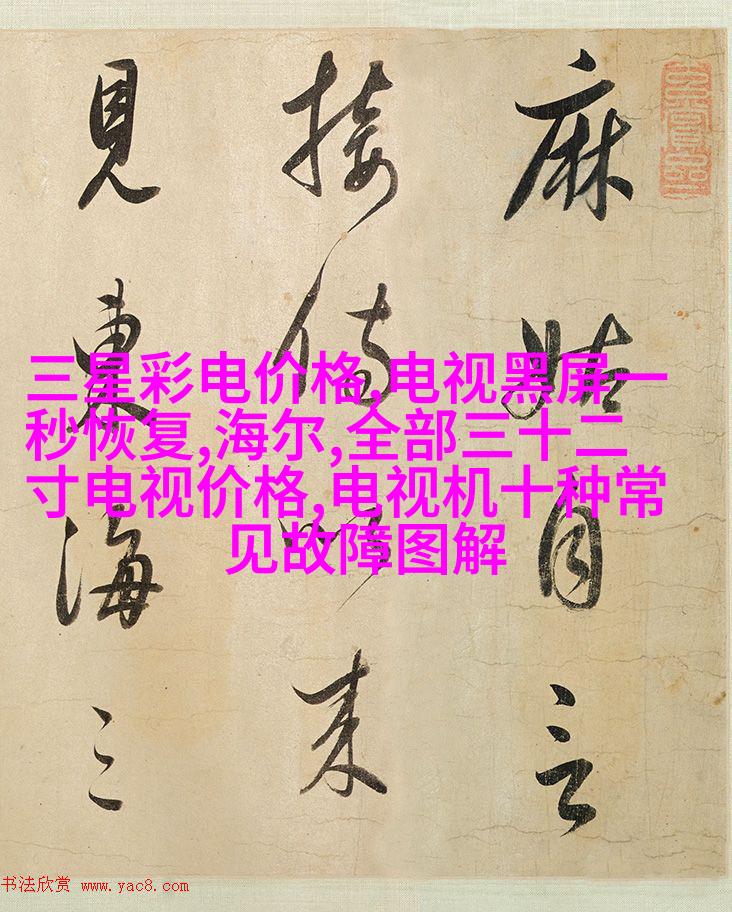 麻姑自言
接侍以来
見東海三
三星彩电价格,电视黑屏一
秒恢复,海尔,全部三十二
寸电视价格,电视机十种常
见故障图解
书法欣赏 www.yac8.com